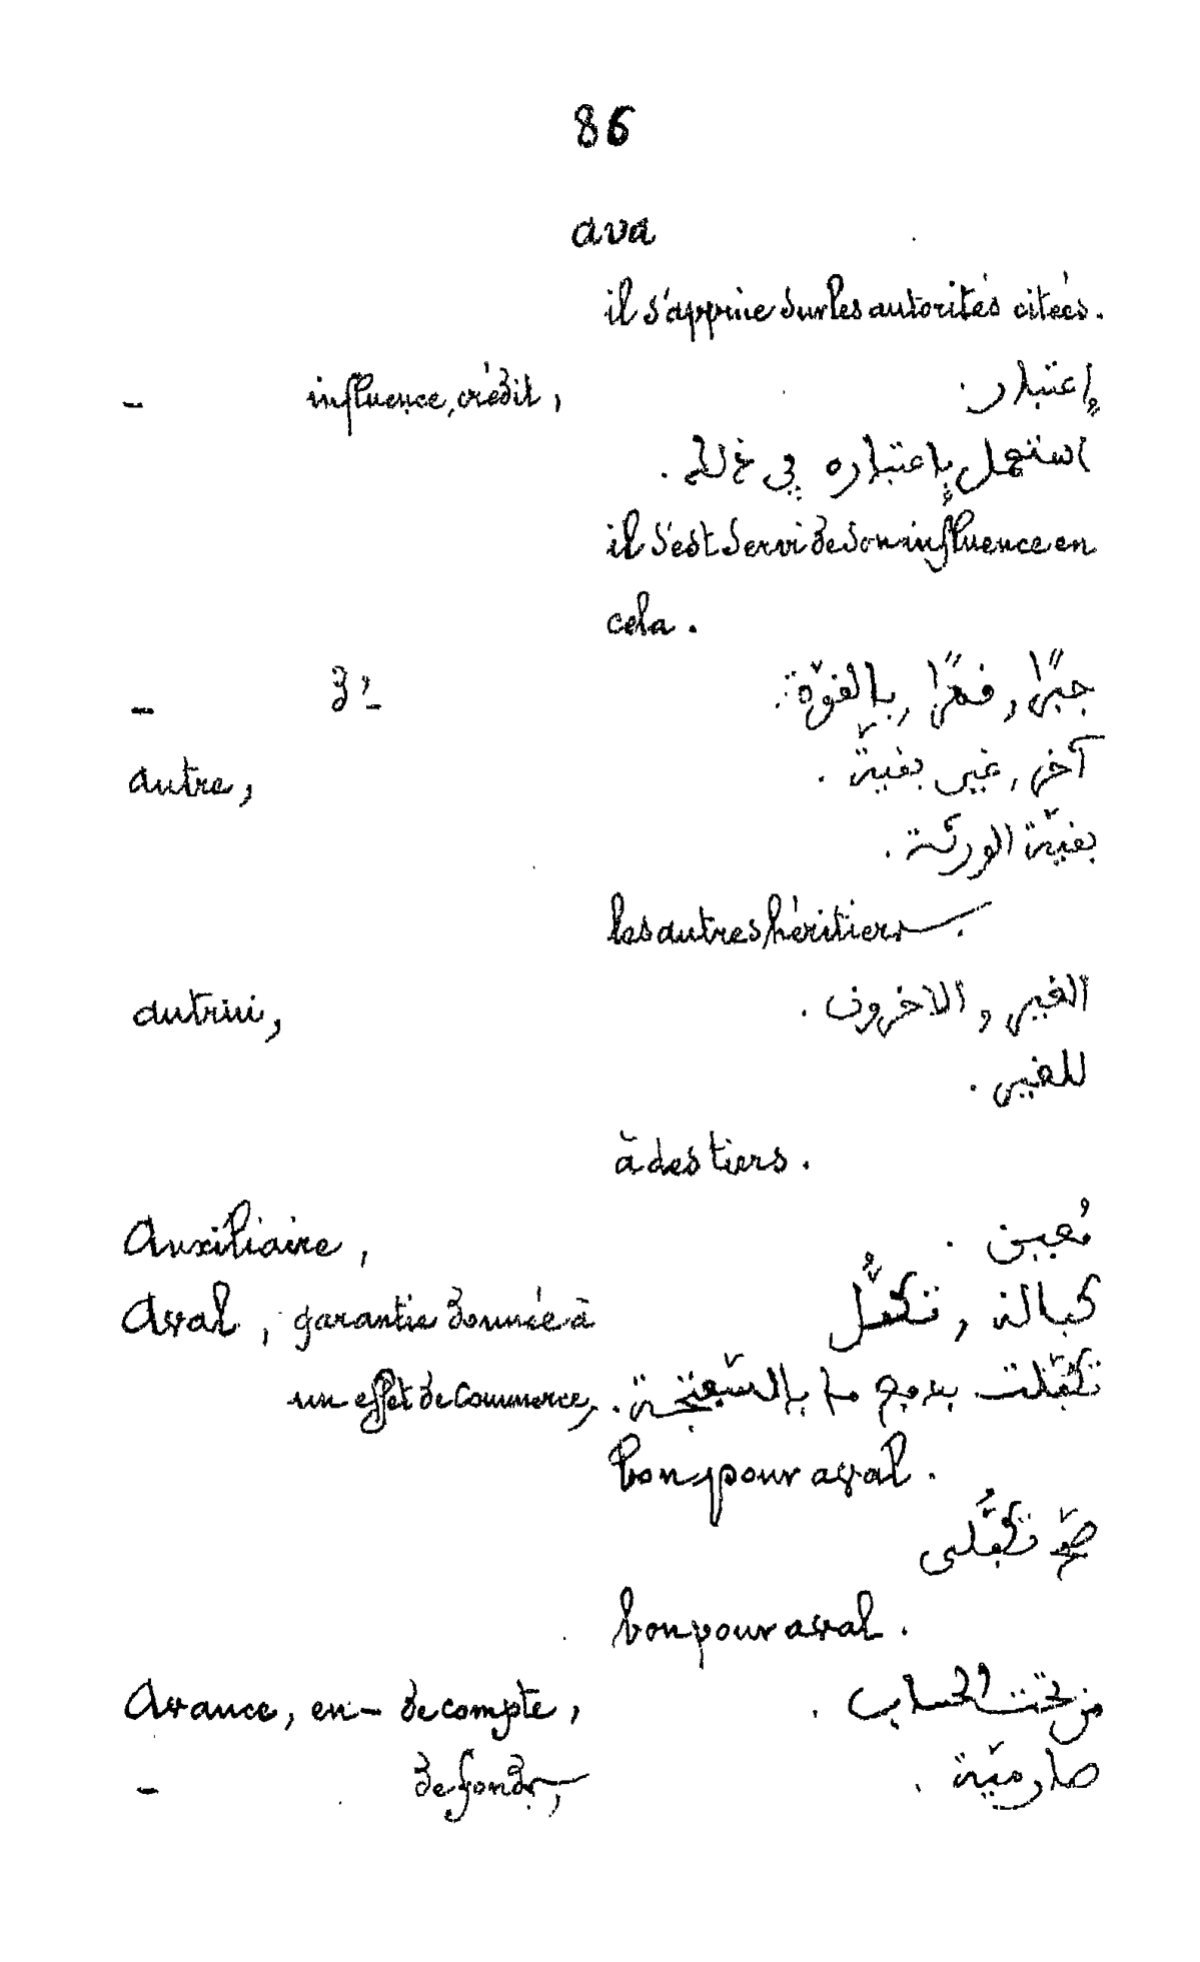 86
ava
il s'appuie sur les autorités citées.
– influence, crédit, إعتبار.
استعمل بإعتباره في ذلك.
il s'est servi de son influence en
cela.
– d'– جبرًا, قهرًا, بالقوّة.
autre, آخر, غير بقيّة.
بقيّة الورثة.
les autres héritiers.
autrui, الغير, الاخرون.
للغير.
à des tiers.
Auxiliaire, مُعين.
Aval, garantie donnée à كفالة, تكفُّل
un effet de commerce, تكفّلت بدفع ما بالسّفتجة.
bon pour aval.
صحّ تكفُّلي
bon pour aval.
Avance, en – de compte, من تحت الحساب.
– de fonds, صارميّة.